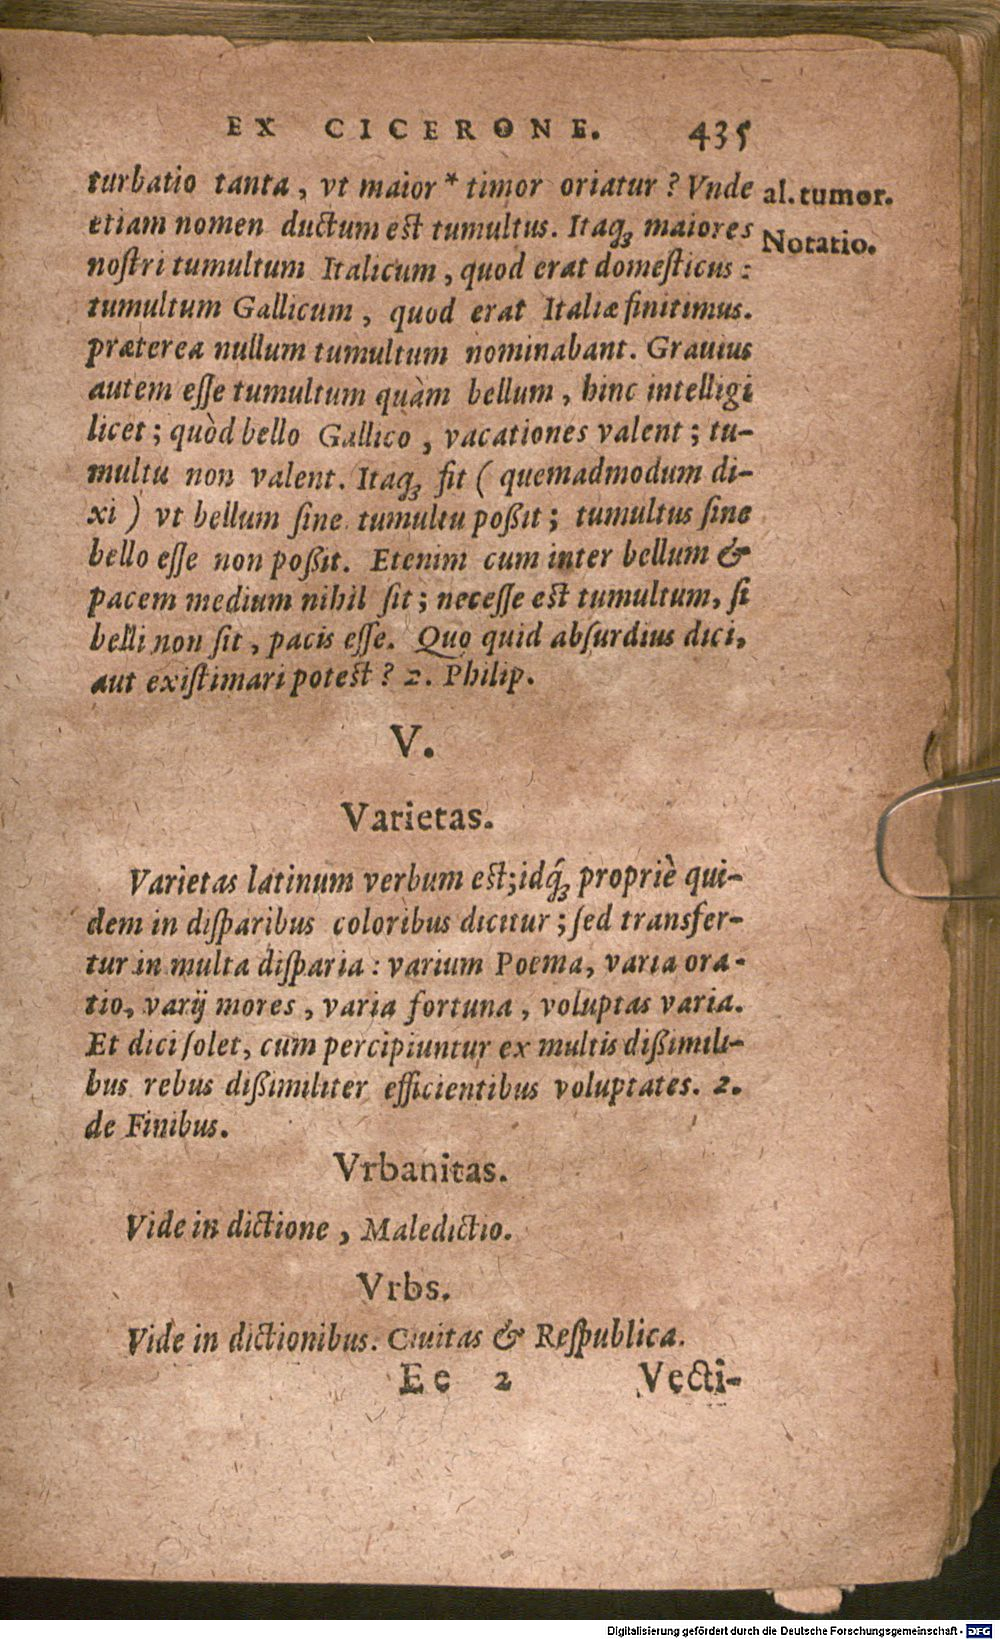 EX CICERONE. 435
turbatio tanta, vt maior * timor oriatur? Vnde
al. tumor.
etiam nomen ductum est tumultus. Itaq₃ maiores
Notatio.
nostri tumultum Italicum, quod erat domesticus:
tumultum Gallicum, quod erat Italiæ finitimus.
præterea nullum tumultum nominabant. Grauius
autem esse tumultum quàm bellum, hinc intelligi
licet; quòd bello Gallico, vacationes valent; tu-
multu non valent. Itaq₃ fit ( quemadmodum di-
xi ) vt bellum sine tumultu poßit; tumultus sine
bello esse non poßit. Etenim cum inter bellum &
pacem medium nihil sit; necesse est tumultum, si
belli non sit, pacis esse. Quo quid absurdius dici,
aut existimari potest? 2. Philip.
V.
Varietas.
Varietas latinum verbum est; idq́₃ propriè qui-
dem in disparibus coloribus dicitur; sed transfer-
tur in multa disparia: varium Poema, varia ora-
tio, varij mores, varia fortuna, voluptas varia.
Et dici solet, cum percipiuntur ex multis dißimili-
bus rebus dißimiliter efficientibus voluptates. 2.
de Finibus.
Vrbanitas.
Vide in dictione, Maledictio.
Vrbs.
Vide in dictionibus. Ciuitas & Respublica.
Ee 2 Vecti-
Digitalisierung gefördert durch die Deutsche Forschungsgemeinschaft - DFG